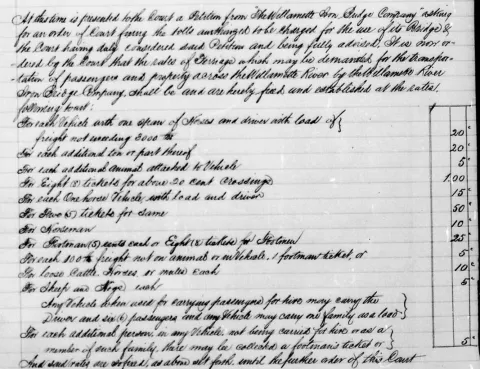 At this time is presented to the Court a Petition from "The Willamette Iron Bridge Company" asking
for an order of Court fixing the tolls authorized to be charged for the use of its Bridge &
the Court having duly considered said Petition and being fully advised, It is now or-
dered by the Court that the rates of Ferriage which may be demanded for the transpor-
tation of passengers and property across the Willamette River by the Willamette River
Iron Bridge Company, shall be and are hereby fixed and established at the rates
following to wit:
For each Vehicle with one span of Horses and driver with load of }
freight not exceeding 2000 lbs 20 c
For each additional ton or part thereof 20 c
For each additional animal attached to Vehicle 5 c
For Eight (8) tickets for above 20 cent Crossings 1.00
For each One horse Vehicle, with load and driver 15 c
For Five (5) tickets for same 50
For Horseman 10 c
For Footman (5) cents each or Eight (8) tickets for Footmen 25
For each 100 lbs freight not on animal or in Vehicle, 1 footmans ticket, or 5 c
For loose Cattle, Horses, or mules each 10 c
For Sheep and Hogs each 5 c
Any Vehicle when used for carrying passengers for hire may carry the }
Driver and six (6) passengers and any Vehicle may carry one family as a load }
For each additional person, in any Vehicle not being carried for hire or as a }
member of such family, there may be collected a footman's ticket or } 5 c
And said rates are so fixed, as above set forth, until the further order of this Court